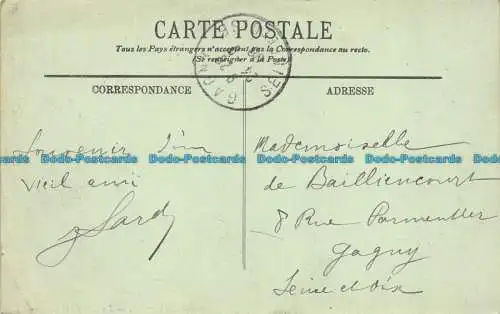 CARTE POSTALE
Tous les Pays étrangers n'acceptent pas la Correspondance au recto.
(Se renseigner à la Poste)
CORRESPONDANCE
ADRESSE
Souvenir d'un
vieil ami
Mademoiselle
de Bailliencourt
8 Rue Parmentier
Gagny
Seine et Oise
Bodo-Postcards Bodo-Postcards Bodo-Postcards
Bodo-Postcards Bodo-Postcards Bodo-Postcards